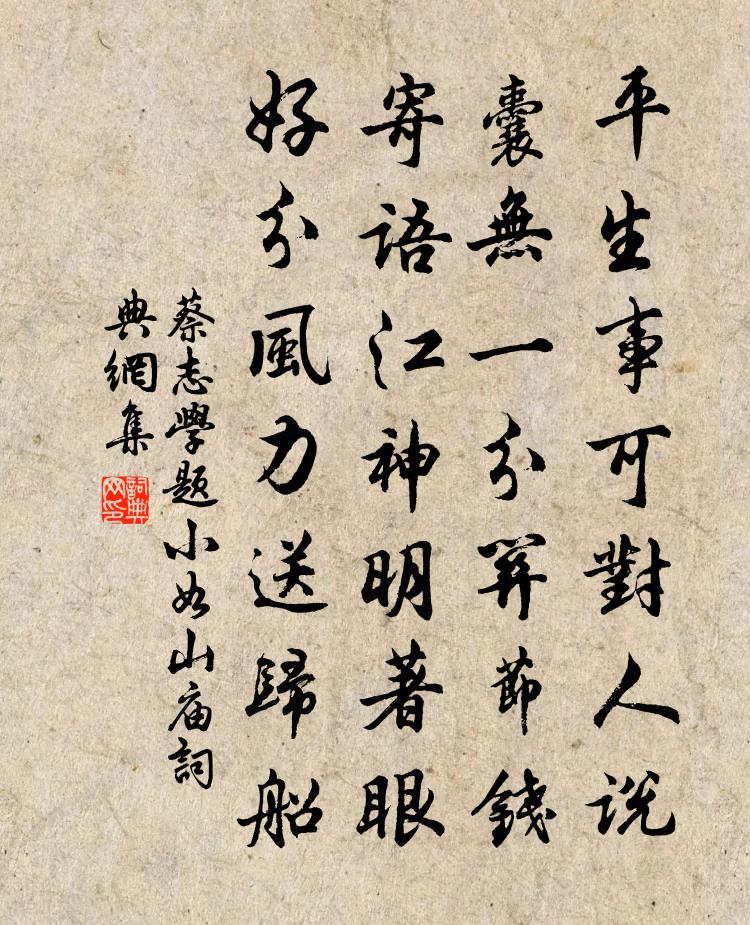 平生事可對人説
囊無一分關節錢
寄語江神明著眼
好分風力送歸船
蔡志學題小如山庙詞
典網集
詞典
网印